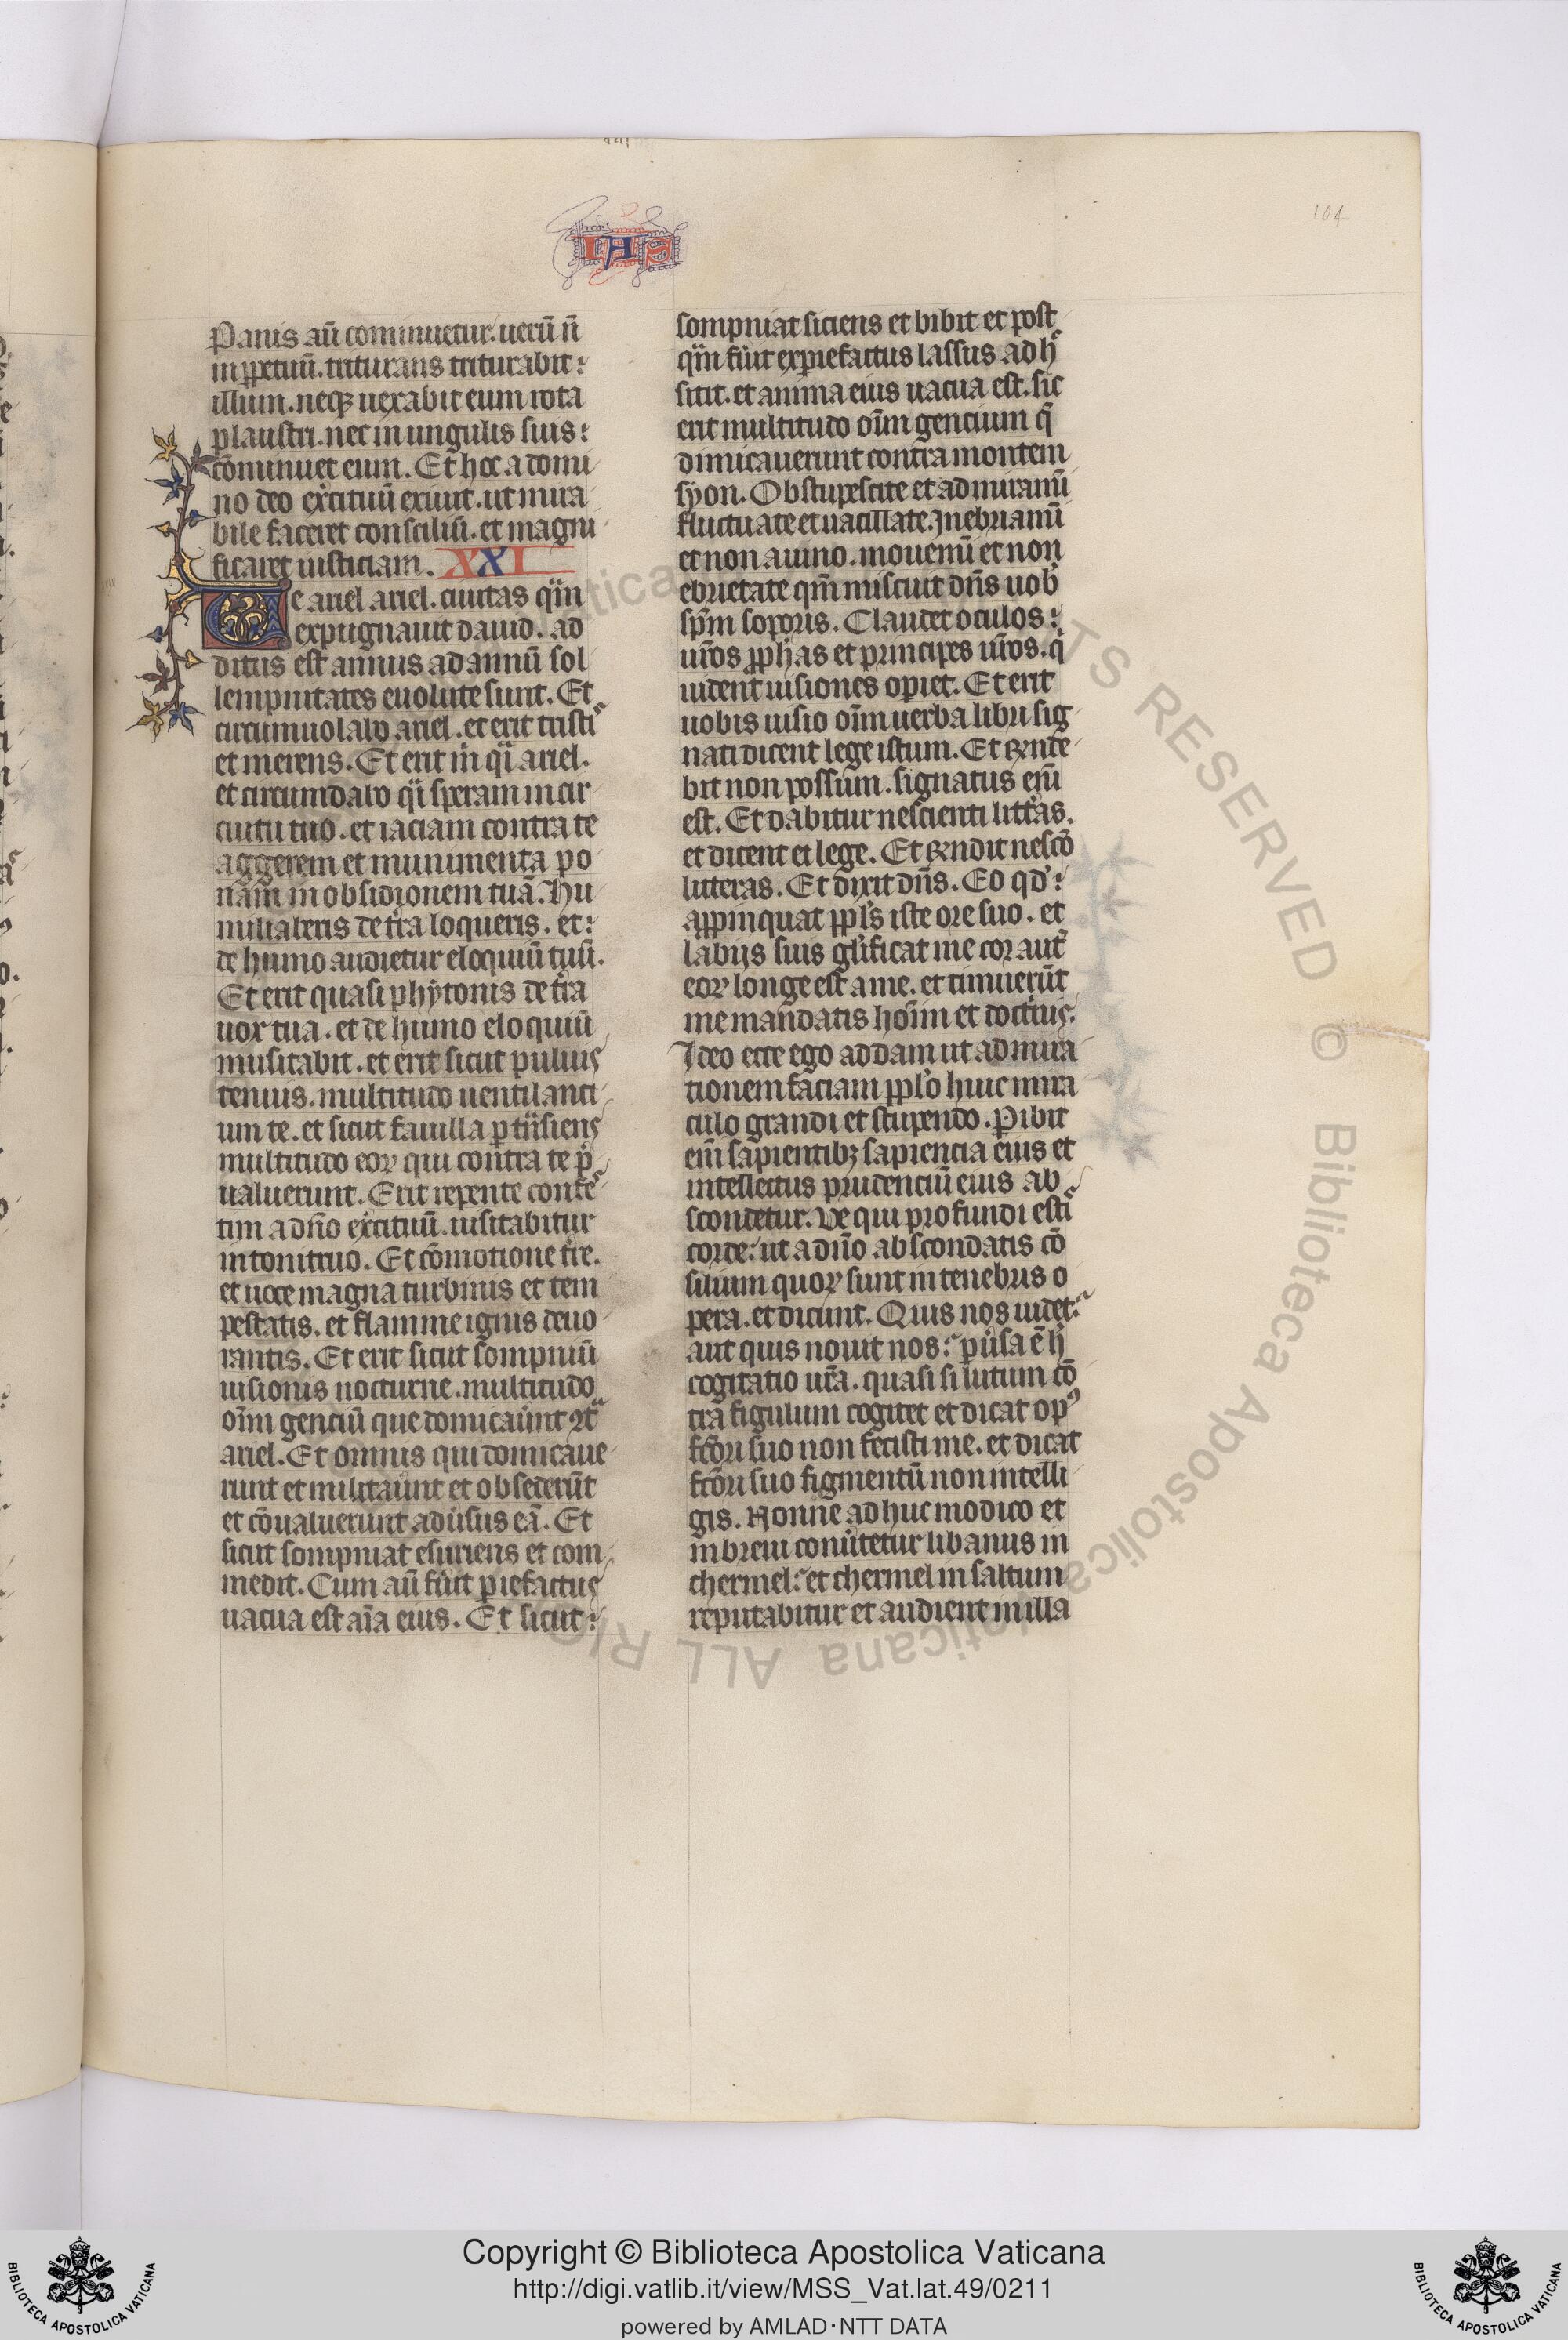 104
IAS
Panis aũ comminuetur. uerũ ñ
in ꝑpetuũ. triturans triturabit:
illum. neqꝫ uexabit eum rota
plaustri. nec in ungulis suis:
cõminuet eum. Et hoc a domi
no deo exercituũ exiuit. ut mira
bile faceret consciliũ. et magni
ficaret iusticiam. XXI
Ue ariel ariel. ciuitas qãm
expugnauit dauid. ad
ditus est annus ad annũ sol
lempnitates euolute sunt. Et
circumuolabo ariel. et erit tristis
et merens. Et erit m̃ qͣi ariel.
et circumdabo qͣi speram in cir
cuitu tuo. et iaciam contra te
aggerem et munimenta po
nam in obsidionem tuã. Hu
miliaberis de tr̃a loqueris. et:
de humo audietur eloquiũ tuũ.
Et erit quasi phytonis de tr̃a
uox tua. et de humo eloquiũ
musitabit. et erit sicut puluis
tenuis. multitudo uentilanti
um te. et sicut fauilla ꝑtñsiens
multitudo eoꝝ qui contra te p̃
ualuerunt. Erit repente confes
tim a dño exc̓ituũ. uisitabitur
in tonitruo. Et cõmotione tr̃e.
et uoce magna turbinis et tem
pestatis. et flamme ignis deuo
rantis. Et erit sicut sompniũ
uisionis nocturne. multitudo
oĩm genciũ que domicaũunt ↄtͣ
ariel. Et omnis qui domicaue
runt et militaũunt et obsederũt
et cõualuerunt adũsus eã. Et
sicut sompniat esuriens et com
medit. Cum aũ fũit ꝑiefactus
uacua est aĩa eius. Et sicut:
sompniat siciens et bibit et post
qͣm fũit expiefactus lassus ad h̓
sitit. et anima eius uacua est. sic
erit multitudo oĩm gencium q̃
dimicauerunt contra montem
syon. Obstupescite et admiramĩ
fluctuate et uacillate. Inebriamĩ
et non a uino. mouemĩ et non
ebrietate qm̃ miscuit dñs uob̓
sp̃m soporis. Claudet oculos:
ur̃os ꝓphas et principes ur̃os. q̓
uident uisiones opiet. Et erit
uobis uisio oĩm uerba libri sig
nati dicent lege istum. Et rñde
bit non possum. signatus eĩ
est. Et dabitur nescienti litt̃as.
et dicent ei lege. Et rñdit nescõ
litteras. Et dixit dñs. Eo qd̓:
appinquat ppl̓s iste ore suo. et
labijs suis gl̓ificat me cor aut̃
eoꝝ longe est a me. et timuerũt
me mandatis hoĩm et doctͥis.
Ideo ecce ego addam ut admira
tionem faciam ppl̓o huic mira
culo grandi et stupendo. Pibit
eĩ sapientibꝫ sapiencia eius et
intellectus prudenciũ eius ab
scondetur. Ve qui profundi estis
corde: ut a dño abscondatis cõ
silium quoꝝ sunt in tenebris o
pera. et dicunt. Quis nos uidet:
aut quis nouit nos: pũsa ẽ h̓
cogitatio ur̃a. quasi si lutum cõ
tra figulum cogitet et dicat op̓
fc̃ori suo non fecisti me. et dicat
fc̃ori suo figmentũ non intelli
gis. Nonne adhuc modico et
in breui conũtetur libanus in
chermel: et chermel in saltum
reputabitur et audient in illa
ALL RIGHTS RESERVED © Biblioteca Apostolica Vaticana
Copyright © Biblioteca Apostolica Vaticana
http://digi.vatlib.it/view/MSS_Vat.lat.49/0211
powered by AMLAD·NTT DATA
BIBLIOTECA APOSTOLICA VATICANA
BIBLIOTECA APOSTOLICA VATICANA